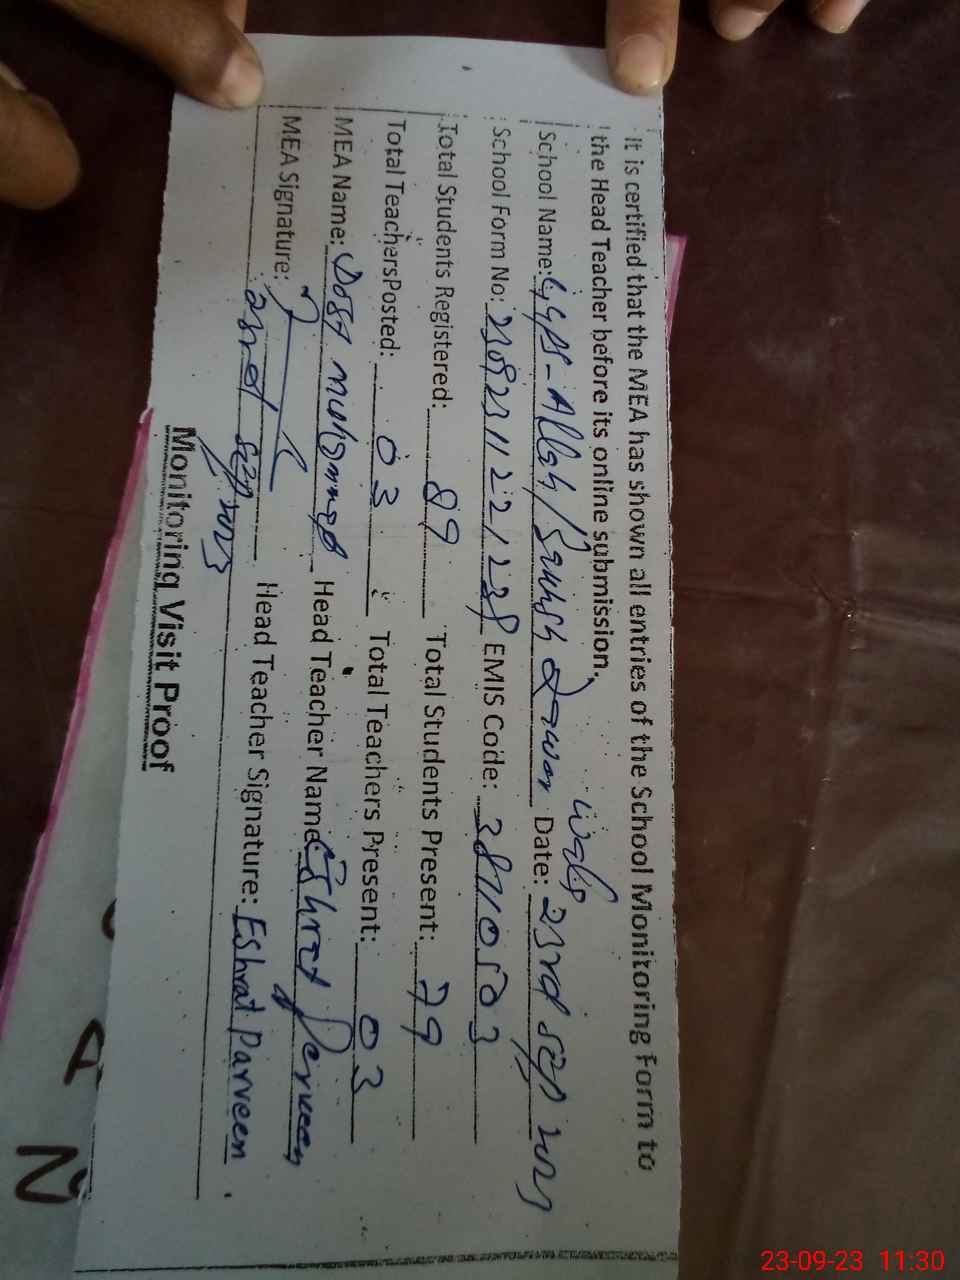 It is certified that the MEA has shown all entries of the School Monitoring Form to
the Head Teacher before its online submission.
School Name: GGPS-Allah Date: 23rd sep 2023
School Form No: EMIS Code:
Total Students Registered: 89 Total Students Present: 79
Total Teachers Posted: 03 Total Teachers Present: 03
MEA Name: Dost Muhammad Head Teacher Name: Eshrat Perveen
MEA Signature: Head Teacher Signature: Eshrat Parveen
23rd sep 2023
Monitoring Visit Proof
A
N
23-09-23 11:30